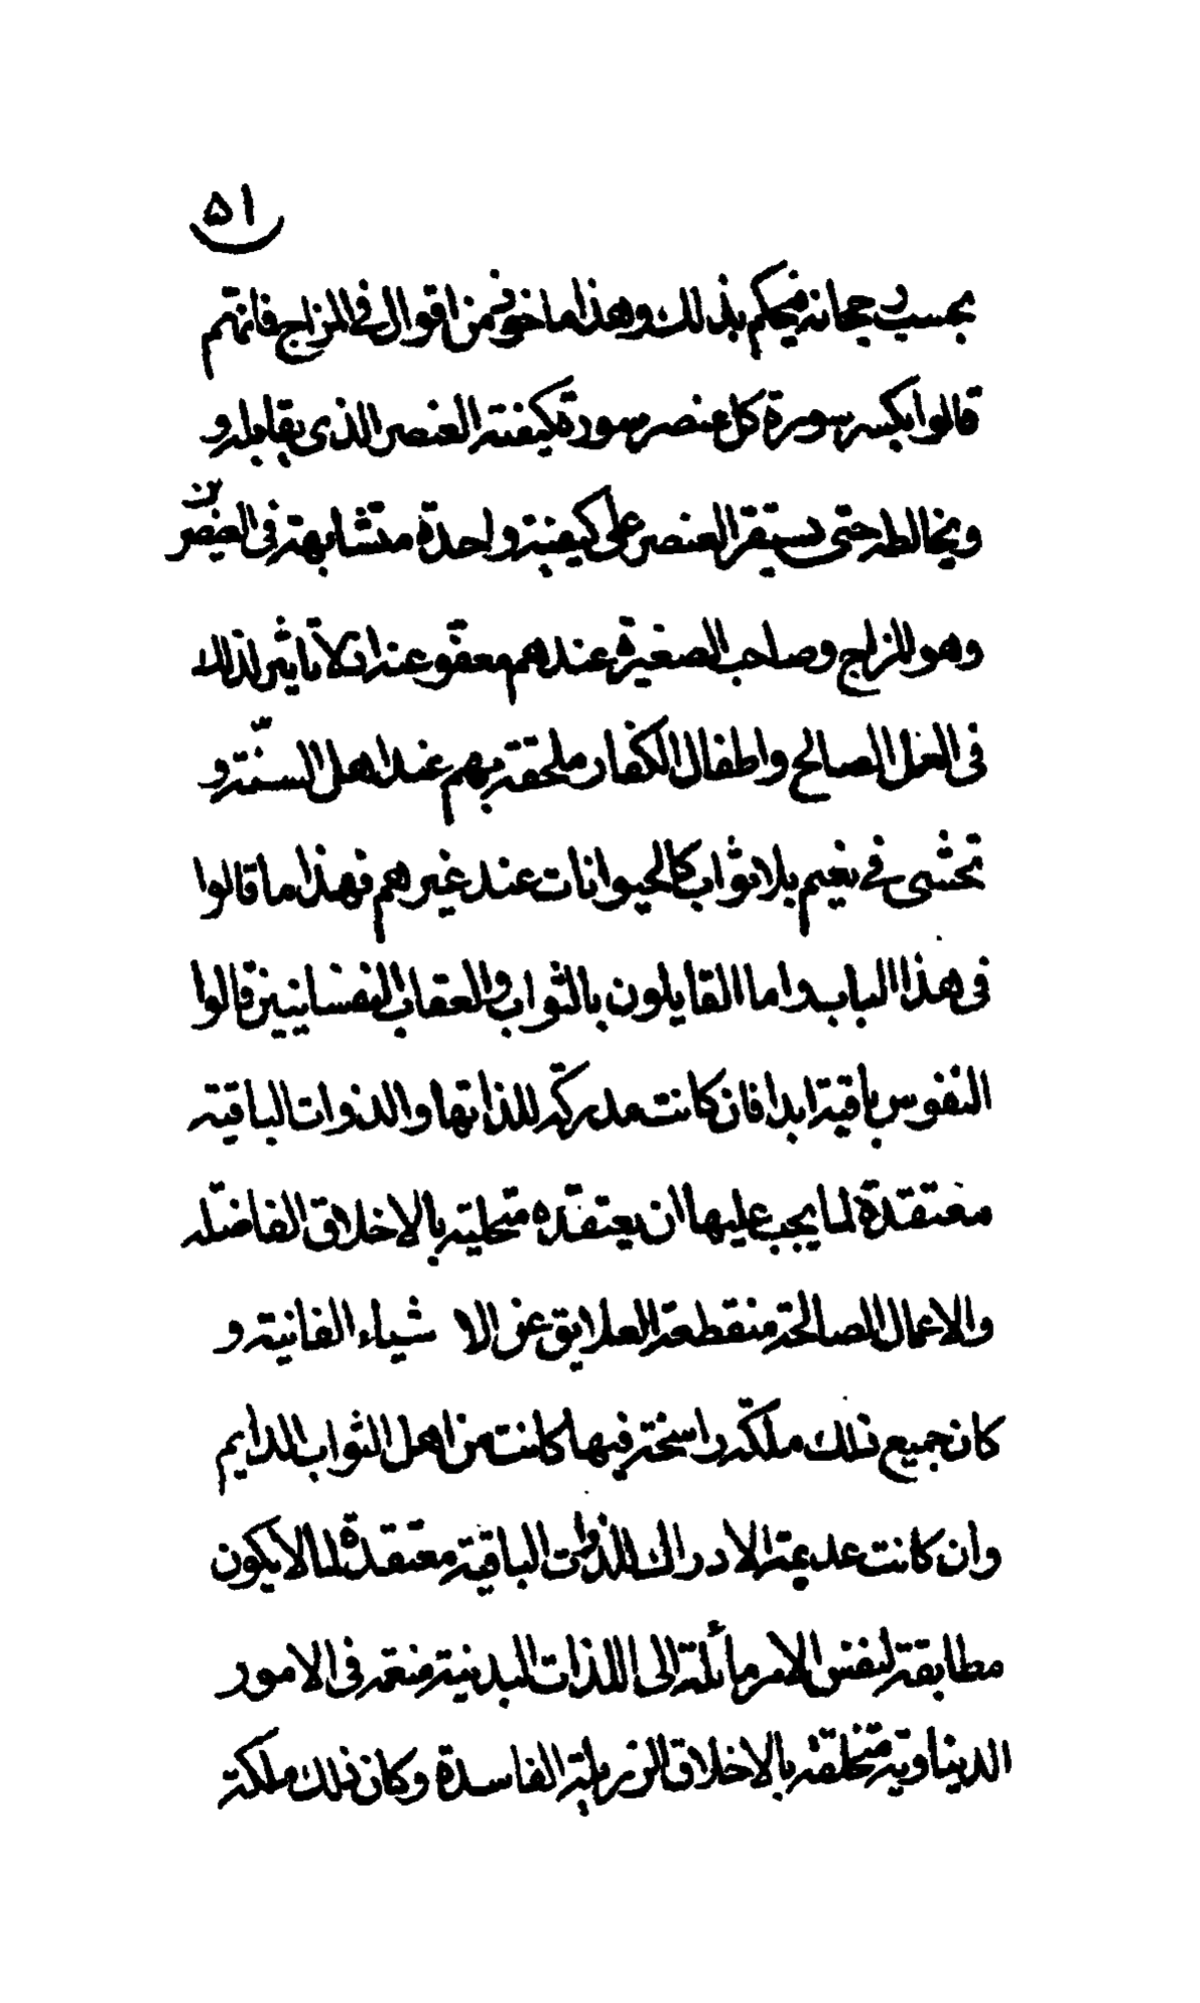 ٥١
بحسب رجحانه فيحكم بذلك وهذا ماخوذ من اقوال في المزاج فانهم
قالوا يكسر سورة كل عنصر سورة كيفية العنصر الذى يقابله و
ويخالطه حتى يستقر العنصر على كيفية واحدة متشابهة فى العنصرين
وهو المزاج وصاحب الصغيرة عندهم معفو عنه اذ لا تاثير لذلك
فى العمل الصالح واطفال الكفار ملحقة بهم عند اهل السنّة و
تحشى في نعيم بلا ثواب كالحيوانات عند غيرهم فهذا ما قالوا
فى هذا الباب واما القايلون بالثواب والعقاب النفسانيين قالوا
النفوس باقية ابدا فان كانت مدركة للذاتها والذوات الباقية
معتقدة لما يجب عليها ان يعتقده متحلية بالاخلاق الفاضله
والاعمال الصالحة منقطعة العلايق عن الا شياء الفانية و
كان جميع ذلك ملكة راسخة فيها كانت من اهل الثواب الدايم
وان كانت عديمة الادراك للذوات الباقية معتقدة لما لا يكون
مطابقة لنفس الامر مائلة الى اللذات البدنية منغمه فى الامور
الديناوية متخلقة بالاخلاق الرزيلة الفاسدة وكان ذلك ملكة